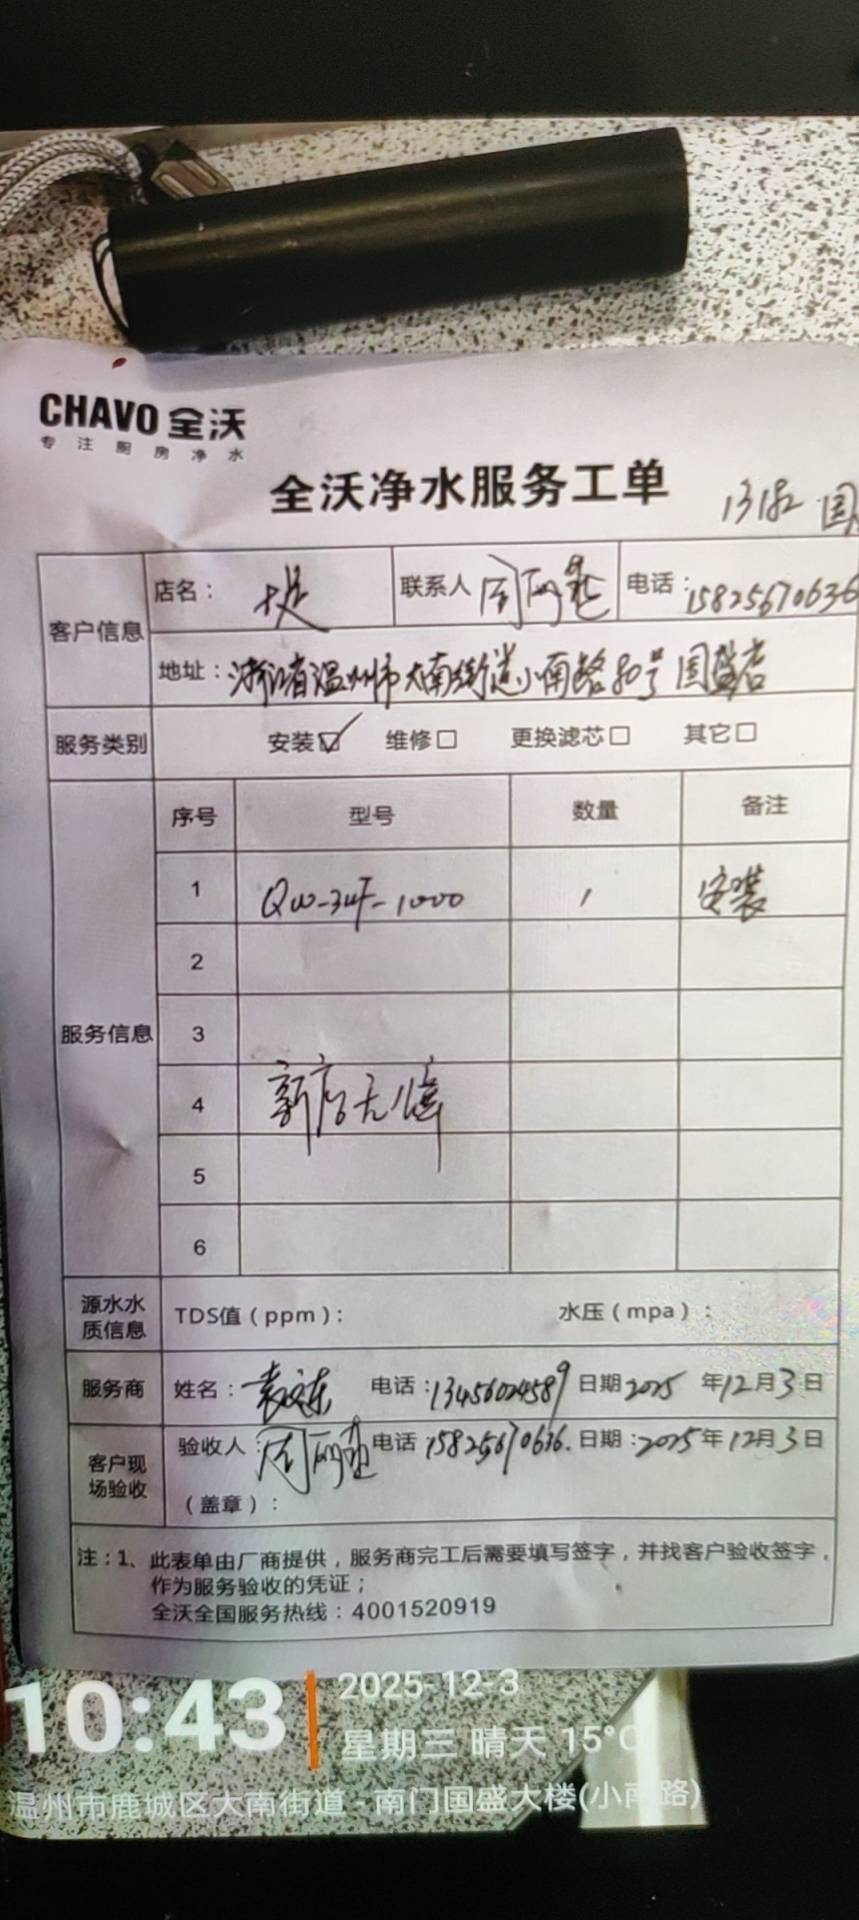 CHAVO 全沃
专注厨房净水
全沃净水服务工单
客户信息 店名： 联系人 电话：15825670636
地址：浙江省温州市大南街道小南路80号国盛店
服务类别 安装☑ 维修□ 更换滤芯□ 其它□
服务信息 序号 型号 数量 备注
1 QW-3UF-1000 1 安装
2
3
4 新店无
5
6
源水水质信息 TDS值（ppm）： 水压（mpa）：
服务商 姓名： 电话：13456024589 日期 2025 年 12 月 3 日
客户现场验收 验收人： 周 电话 15825670636. 日期：2025 年 12 月 3 日
（盖章）：
注：1、此表单由厂商提供，服务商完工后需要填写签字，并找客户验收签字，
作为服务验收的凭证；
全沃全国服务热线：4001520919
10:43
2025-12-3
星期三 晴天 15°C
温州市鹿城区大南街道-南门国盛大楼(小南路)